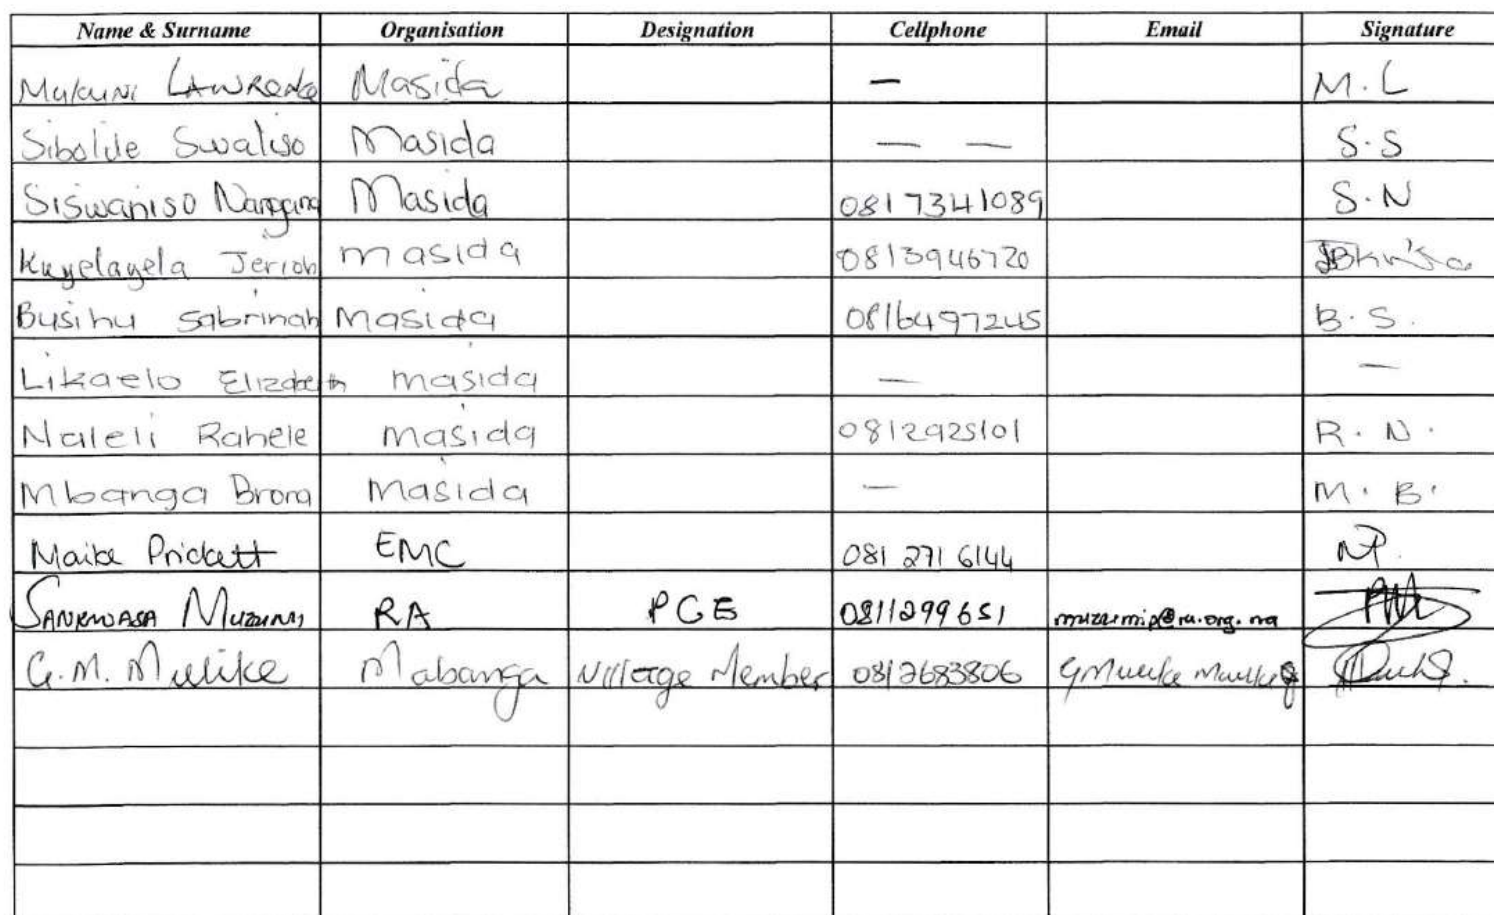 Name & Surname Organisation Designation Cellphone Email Signature
Mukuni LAWRENCE Masida — M.L
Sibolile Swaliso Masida — — S.S
Siswaniso Masida 0817341089 S.N
Kuyelayela Jerioh masida 0813946720
Busihu Sabrinah Masida 0816497245 B.S.
Likaelo Elizabeth masida — —
Naleli Rahele masida 0812925101 R.N.
Mbanga Brona masida — M.B.
Maike Prickett EMC 081 271 6144 MP.
SANKWASA MUZUMI RA PGE 0811299651 muzumip@ra.org.na
G.M. Mulike Mabanga Village Member 0812683806